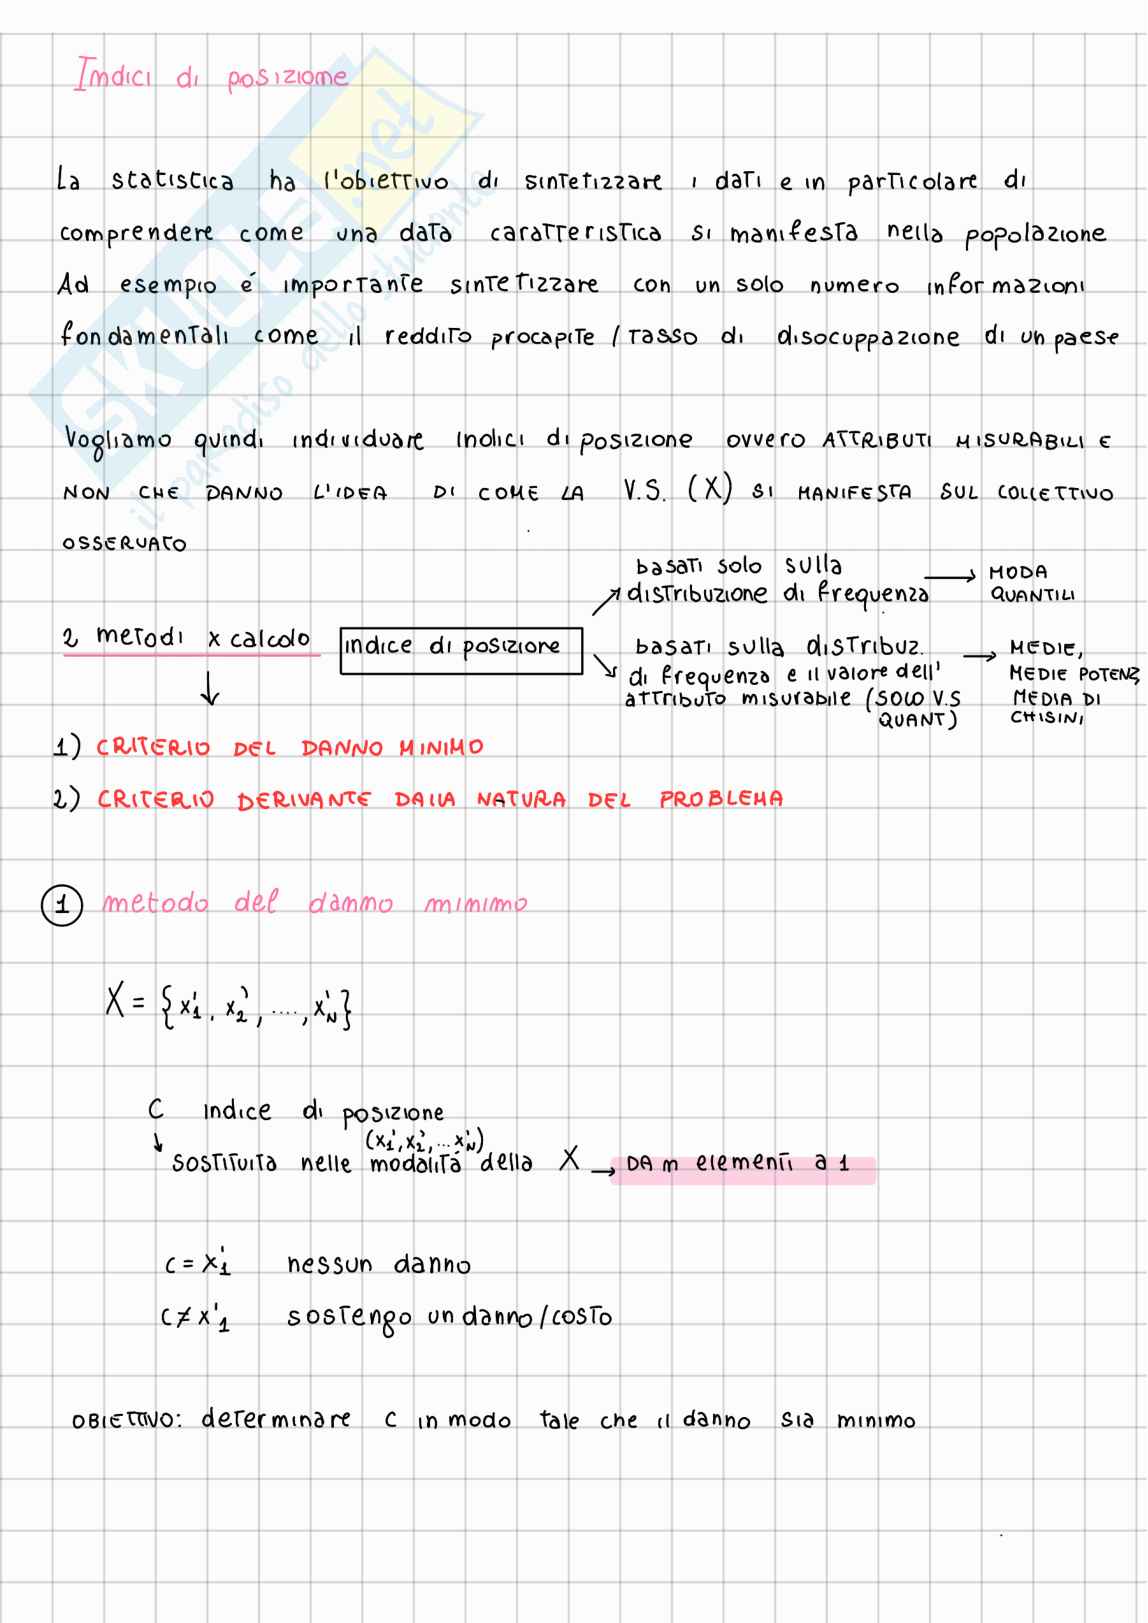 Indici di posizione
La statistica ha l'obiettivo di sintetizzare i dati e in particolare di
comprendere come una data caratteristica si manifesta nella popolazione
Ad esempio é importante sintetizzare con un solo numero informazioni
fondamentali come il reddito procapite / tasso di disocuppazione di un paese
Vogliamo quindi individuare indici di posizione ovvero ATTRIBUTI MISURABILI E
NON CHE DANNO L'IDEA DI COME LA V.S. (X) SI MANIFESTA SUL COLLETTIVO
OSSERVATO
basati solo sulla
distribuzione di frequenza → MODA
QUANTILI
2 metodi x calcolo indice di posizione
basati sulla distribuz. → MEDIE,
di frequenza e il valore dell' MEDIE POTENZ
attributo misurabile (SOLO V.S MEDIA DI
QUANT) CHISINI
1) CRITERIO DEL DANNO MINIMO
2) CRITERIO DERIVANTE DALLA NATURA DEL PROBLEMA
1 metodo del danno minimo
X = {x'1, x'2, ...., x'N}
C indice di posizione
(x'1, x'2, ... x'N)
sostituita nelle modalitá della X → DA n elementi a 1
c = x'1 nessun danno
c ≠ x'1 sostengo un danno/costo
OBIETTIVO: determinare c in modo tale che il danno sia minimo
SKUOLA.net
il paradiso dello studente